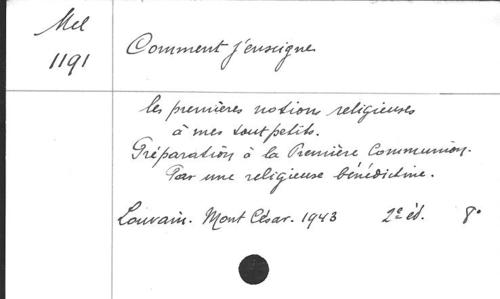 Mel
1191
Comment j'enseigne
les premières notions religieuses
à mes tout petits.
Préparation à la Première Communion.
Par une religieuse bénédictine.
Louvain. Mont César. 1943 2e éd. 8°